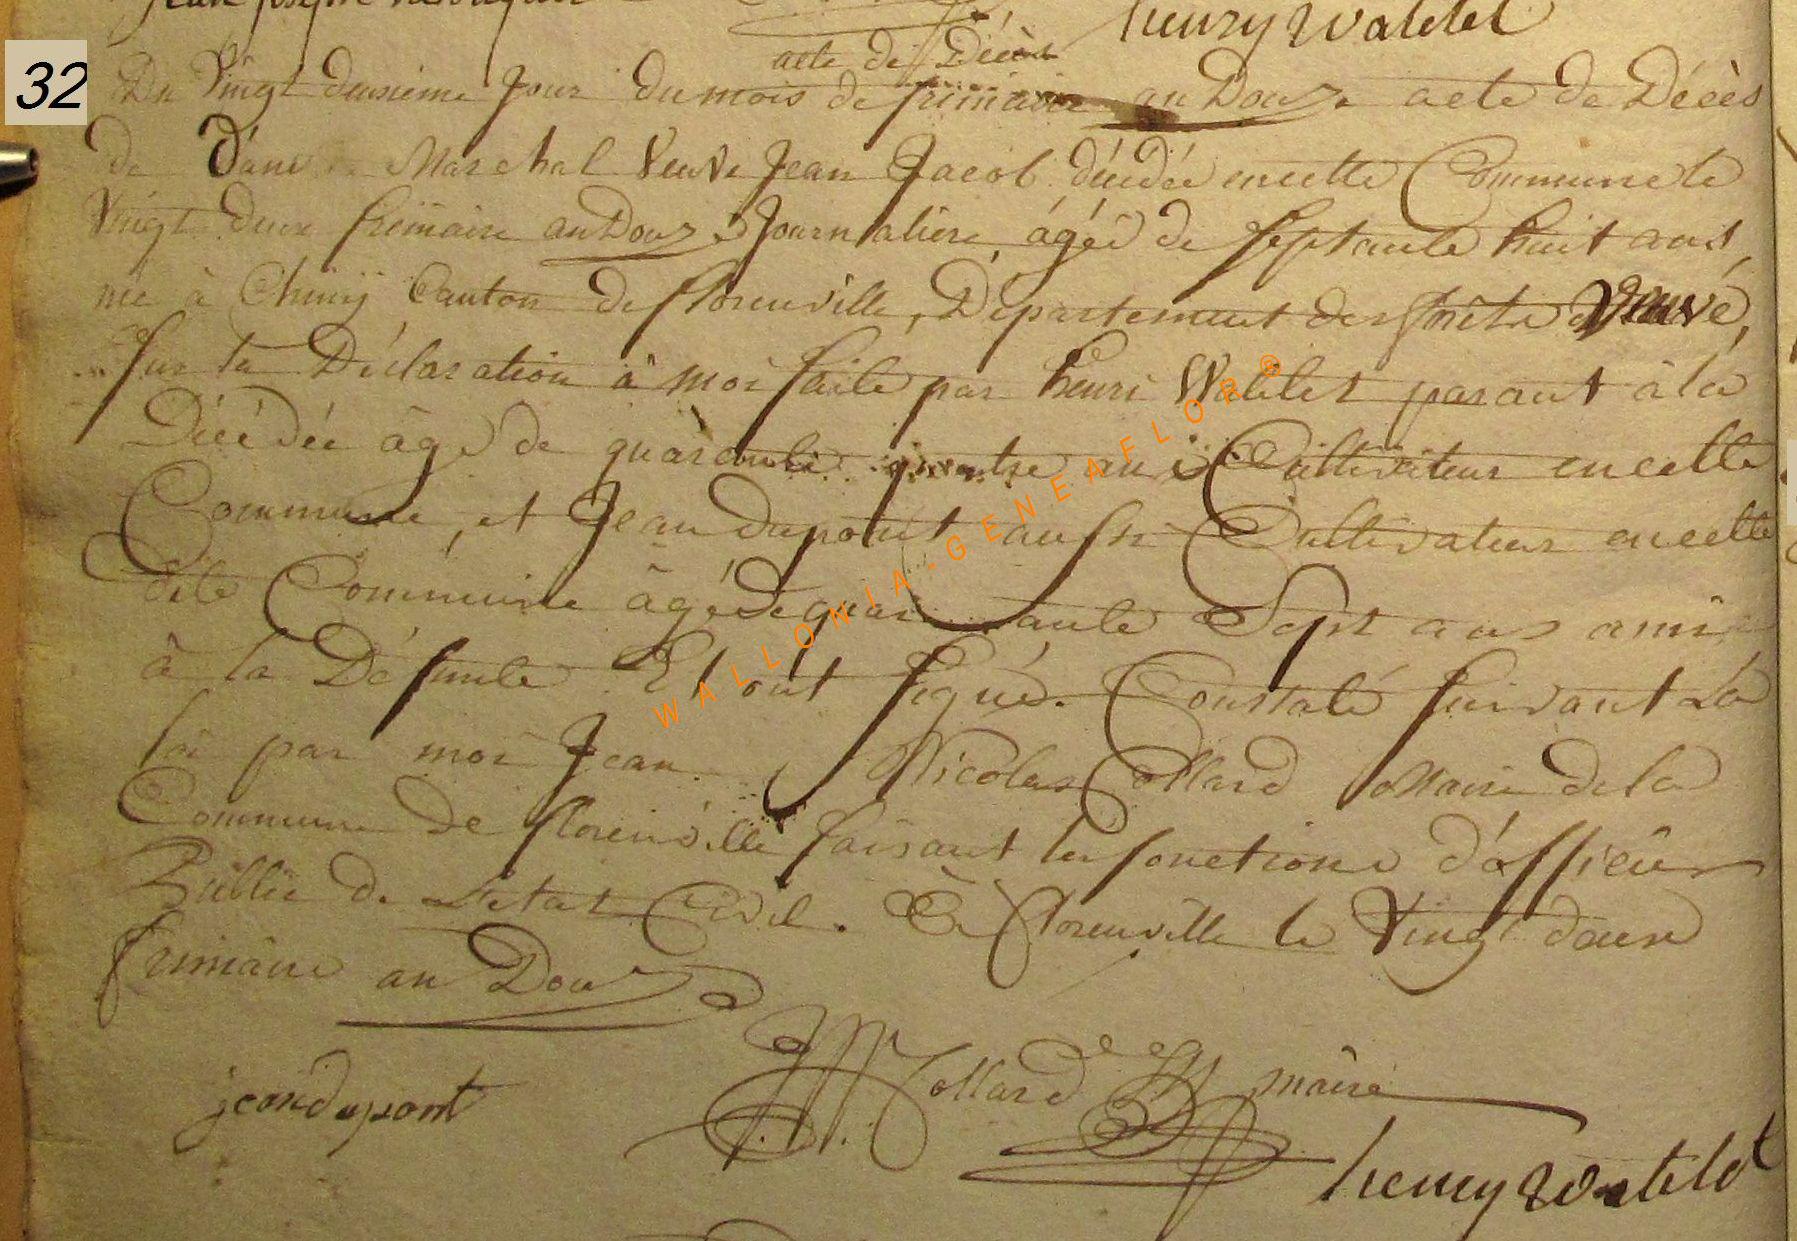 henry Watelet
acte de Décès
32
Du Vingt deusieme Jour du mois de frimaire an Douze acte de Décès
de Marchal Veuve Jean Jacob décédée en cette Commune le
Vingt deux frimaire an Douze Journaliere, âgée de septante huit ans,
née à Chiny Canton de florenville, Département des forêts Veuve,
sur la Déclaration à moi faite par henri Watelet parant à la
Décédée âgé de quarante quatre ans Cultivateur en cette
Commune, et Jean dupont aussi Cultivateur en cette
dite Commune âgé de quarante Sept ans ami
à la Défunte Et ont signé. Constaté suivant La
loi par moi Jean Nicolas Collard Maire de la
Commune de florenville faisant les fonctions d'officier
Public de Letat Civil. à florenville le Vingt deux
frimaire an Douze
Collard maire
jean dupont
henry Watelet
WALLONIA-GENEAFLOR®